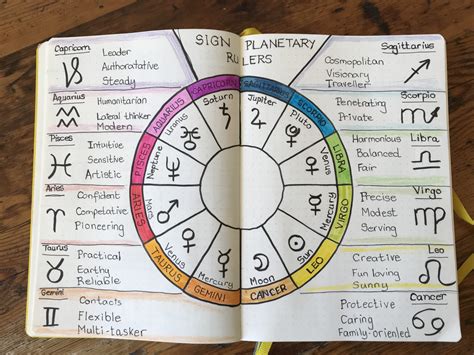 SIGN PLANETARY
RULERS
Capricorn
Leader
Authoratative
Steady
Aquarius
Humanitarian
Lateral thinker
Modern
Pisces
Intuitive
Sensitive
Artistic
Aries
Confident
Competative
Pioneering
Taurus
Practical
Earthy
Reliable
Gemini
Contacts
Flexible
Multi-tasker
CAPRICORN
SAGITTARIUS
SCORPIO
LIBRA
VIRGO
LEO
CANCER
GEMINI
TAURUS
ARIES
PISCES
AQUARIUS
Saturn
Jupiter
Pluto
Venus
Mercury
Sun
Moon
Mercury
Venus
Mars
Neptune
Uranus
Sagittarius
Cosmopolitan
Visionary
Traveller
Scorpio
Penetrating
Private
Libra
Harmonious
Balanced
Fair
Virgo
Precise
Modest
Serving
Leo
Creative
Fun loving
Sunny
Cancer
Protective
Caring
Family-oriented